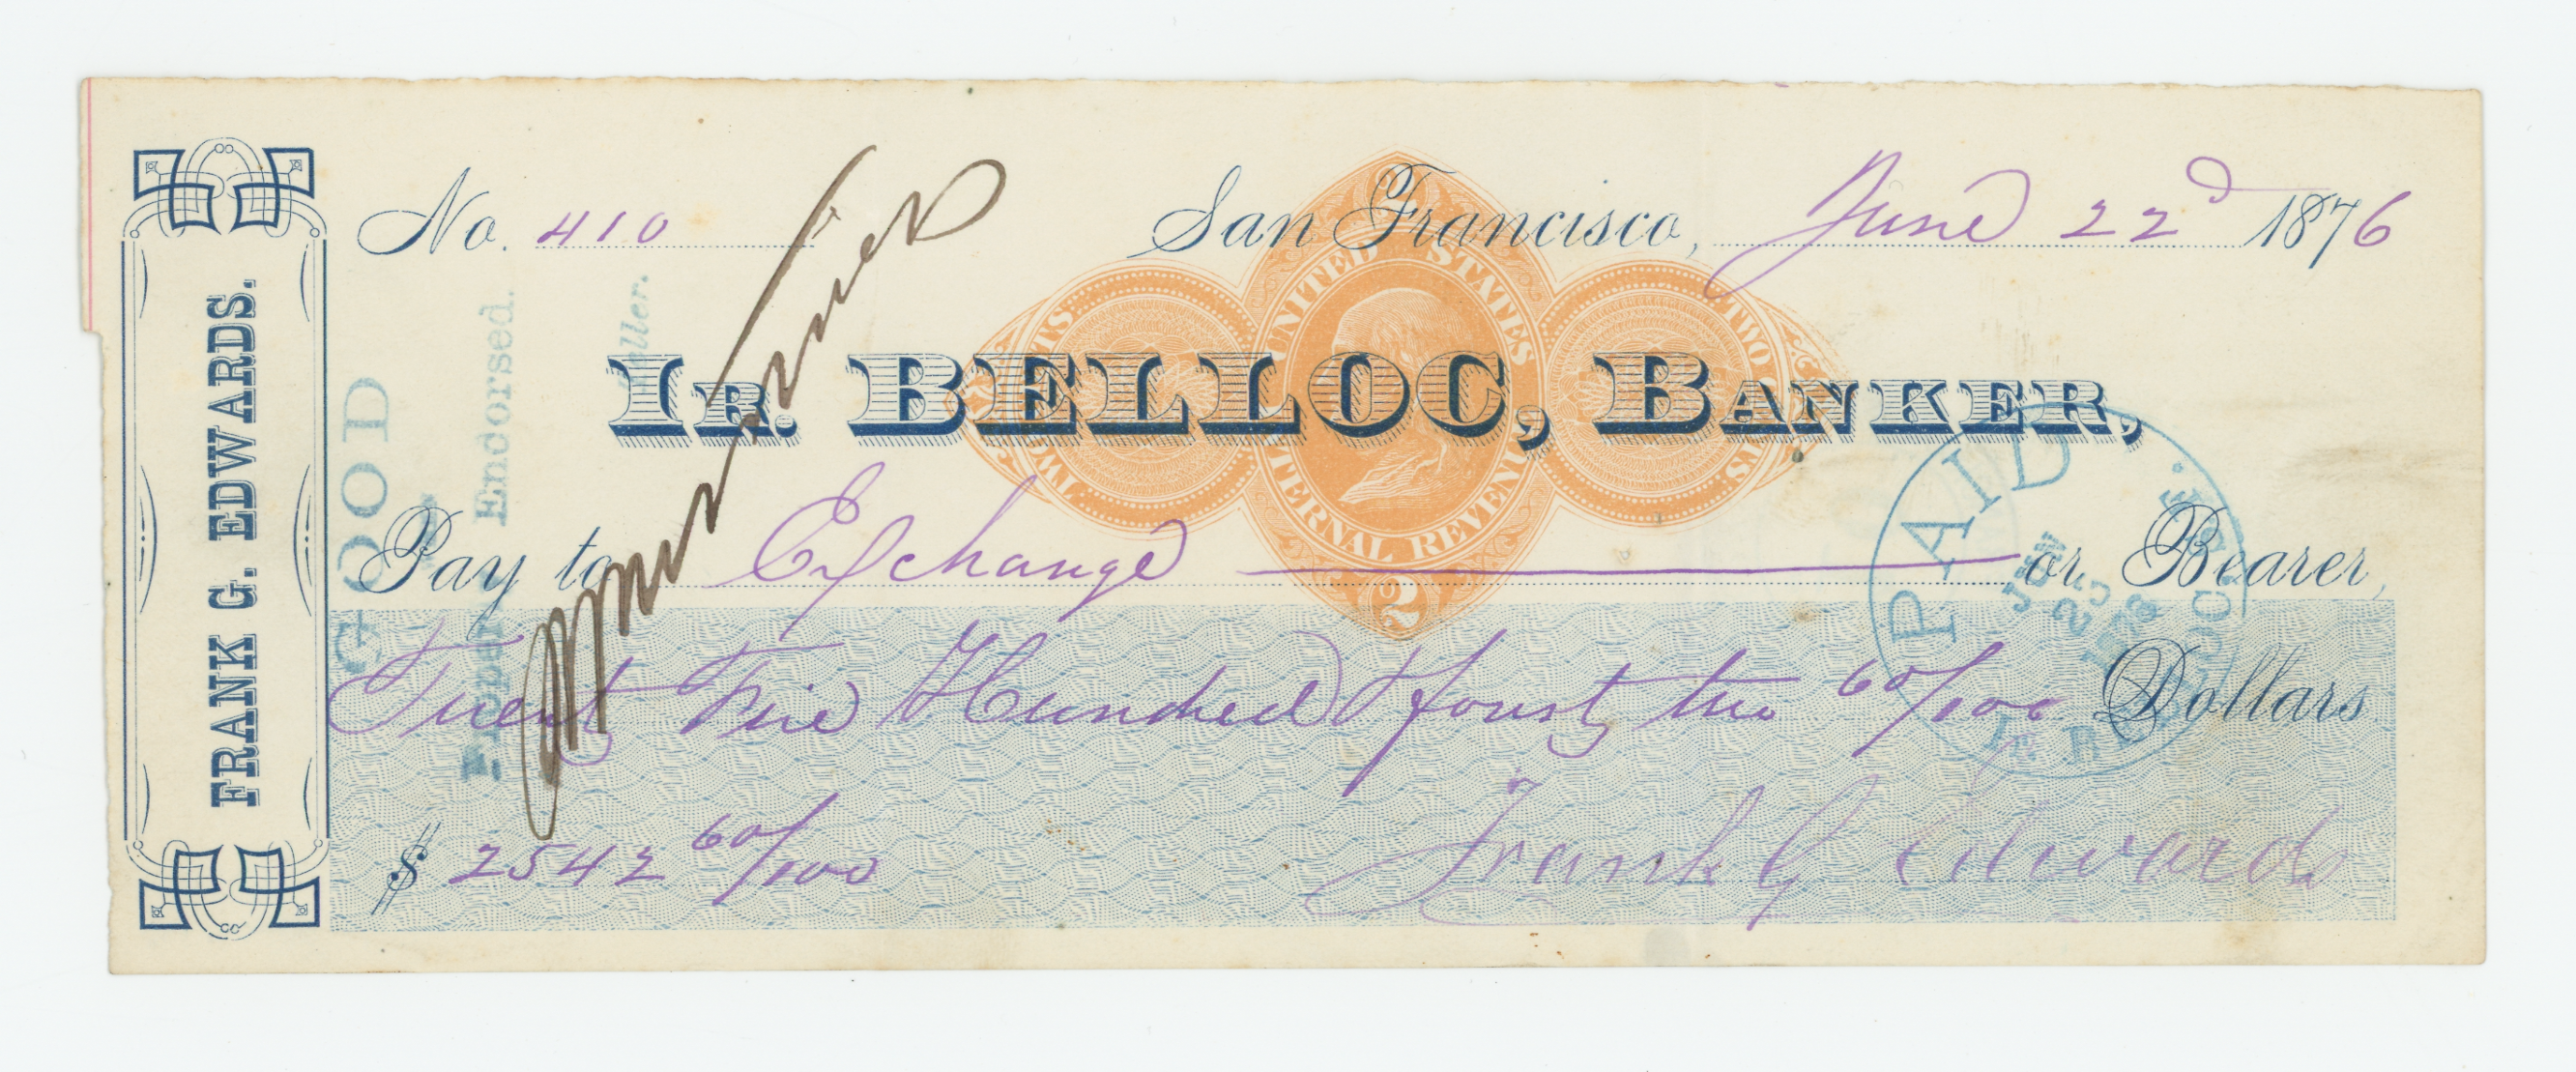 FRANK G. EDWARDS.
No. 410
San Francisco, June 22d 1876
UNITED STATES
INTERNAL REVENUE
TWO CENTS
TWO CENTS
2
IR. BELLOC, BANKER,
Pay to Exchange or Bearer,
Twenty Five Hundred & forty two 60/100 Dollars
$ 2542 60/100
Frank G Edwards
GOOD
Endorsed.
Teller.
PAID
JUN
IR BELLOC